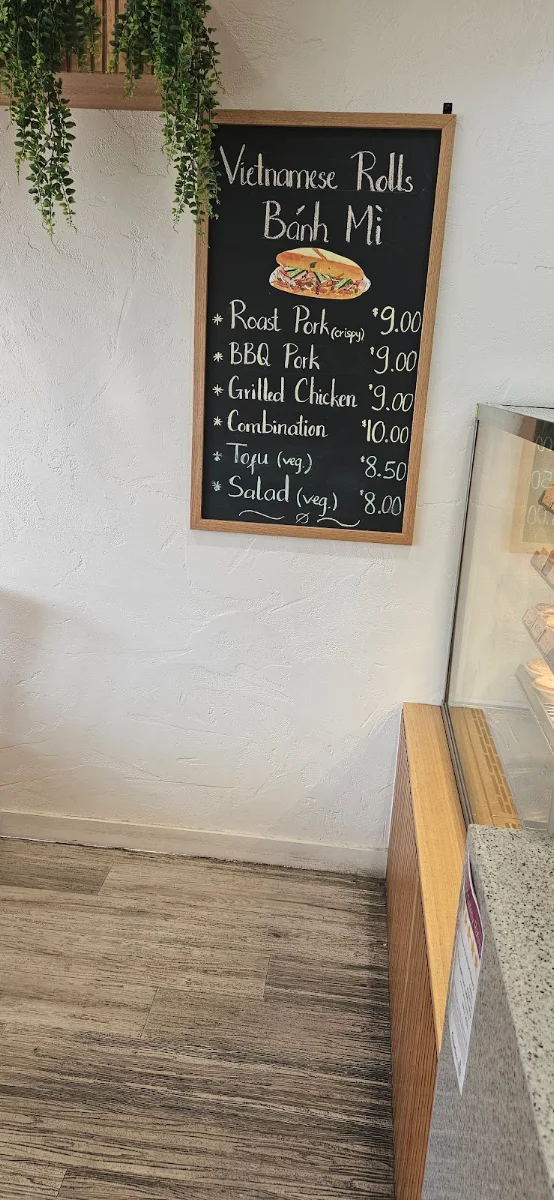 Vietnamese Rolls
Bánh Mì
* Roast Pork (crispy) $9.00
* BBQ Pork $9.00
* Grilled Chicken $9.00
* Combination $10.00
* Tofu (veg.) $8.50
* Salad (veg.) $8.00